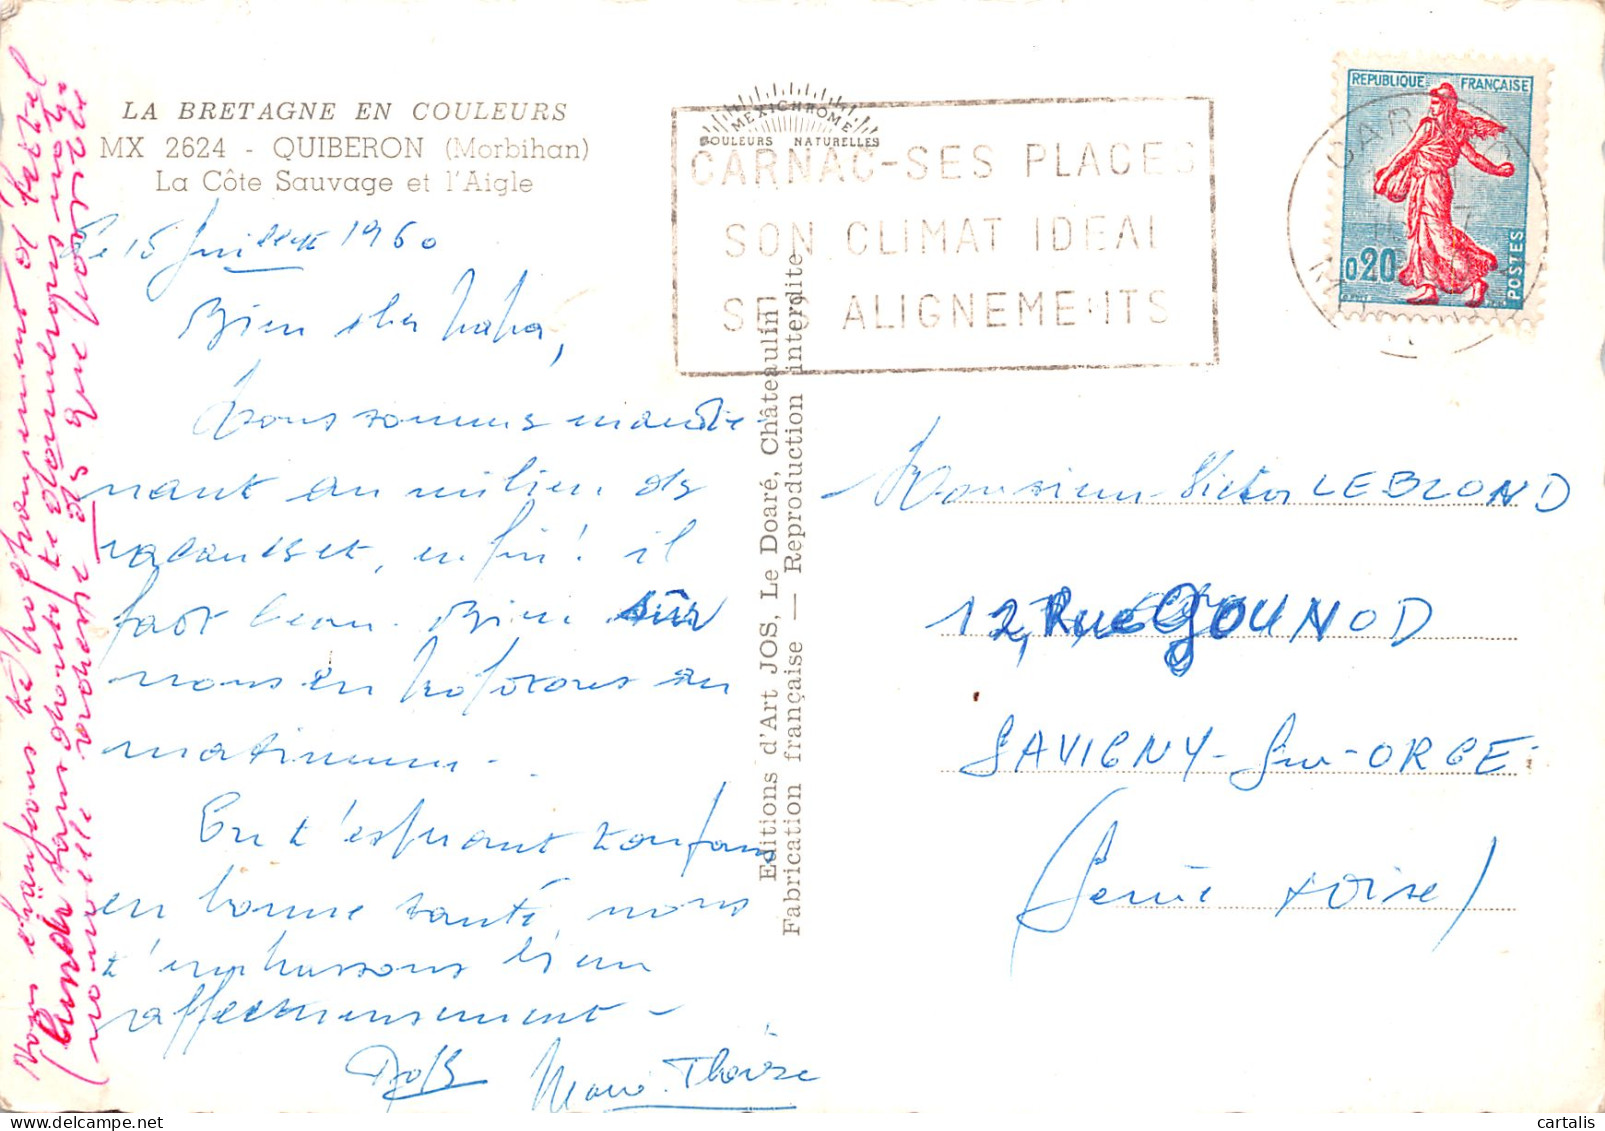 LA BRETAGNE EN COULEURS
MX 2624 - QUIBERON (Morbihan)
La Côte Sauvage et l'Aigle
MEXICHROME
COULEURS NATURELLES
CARNAC-SES PLAGES
SON CLIMAT IDEAL
SES ALIGNEMENTS
REPUBLIQUE FRANÇAISE
0,20
POSTES
CARNAC
Le 15 juillet 1960
Bien cher papa,
Nous sommes mainte-
nant au milieu de
vacances, enfin! il
fait beau. Bien sûr
nous en profitons au
maximum.
En t'espérant toujours
en bonne santé, nous
t'embrassons bien
affectueusement -
Marie-Thérèse
Editions d'Art JOS, Le Doaré, Châteaulin
Fabrication française — Reproduction interdite
Monsieur Victor LEBLOND
12, Rue GOUNOD
SAVIGNY-Sur-ORGE
(Seine et Oise)
Nous
sans doute
nouvelle adresse dès que possible